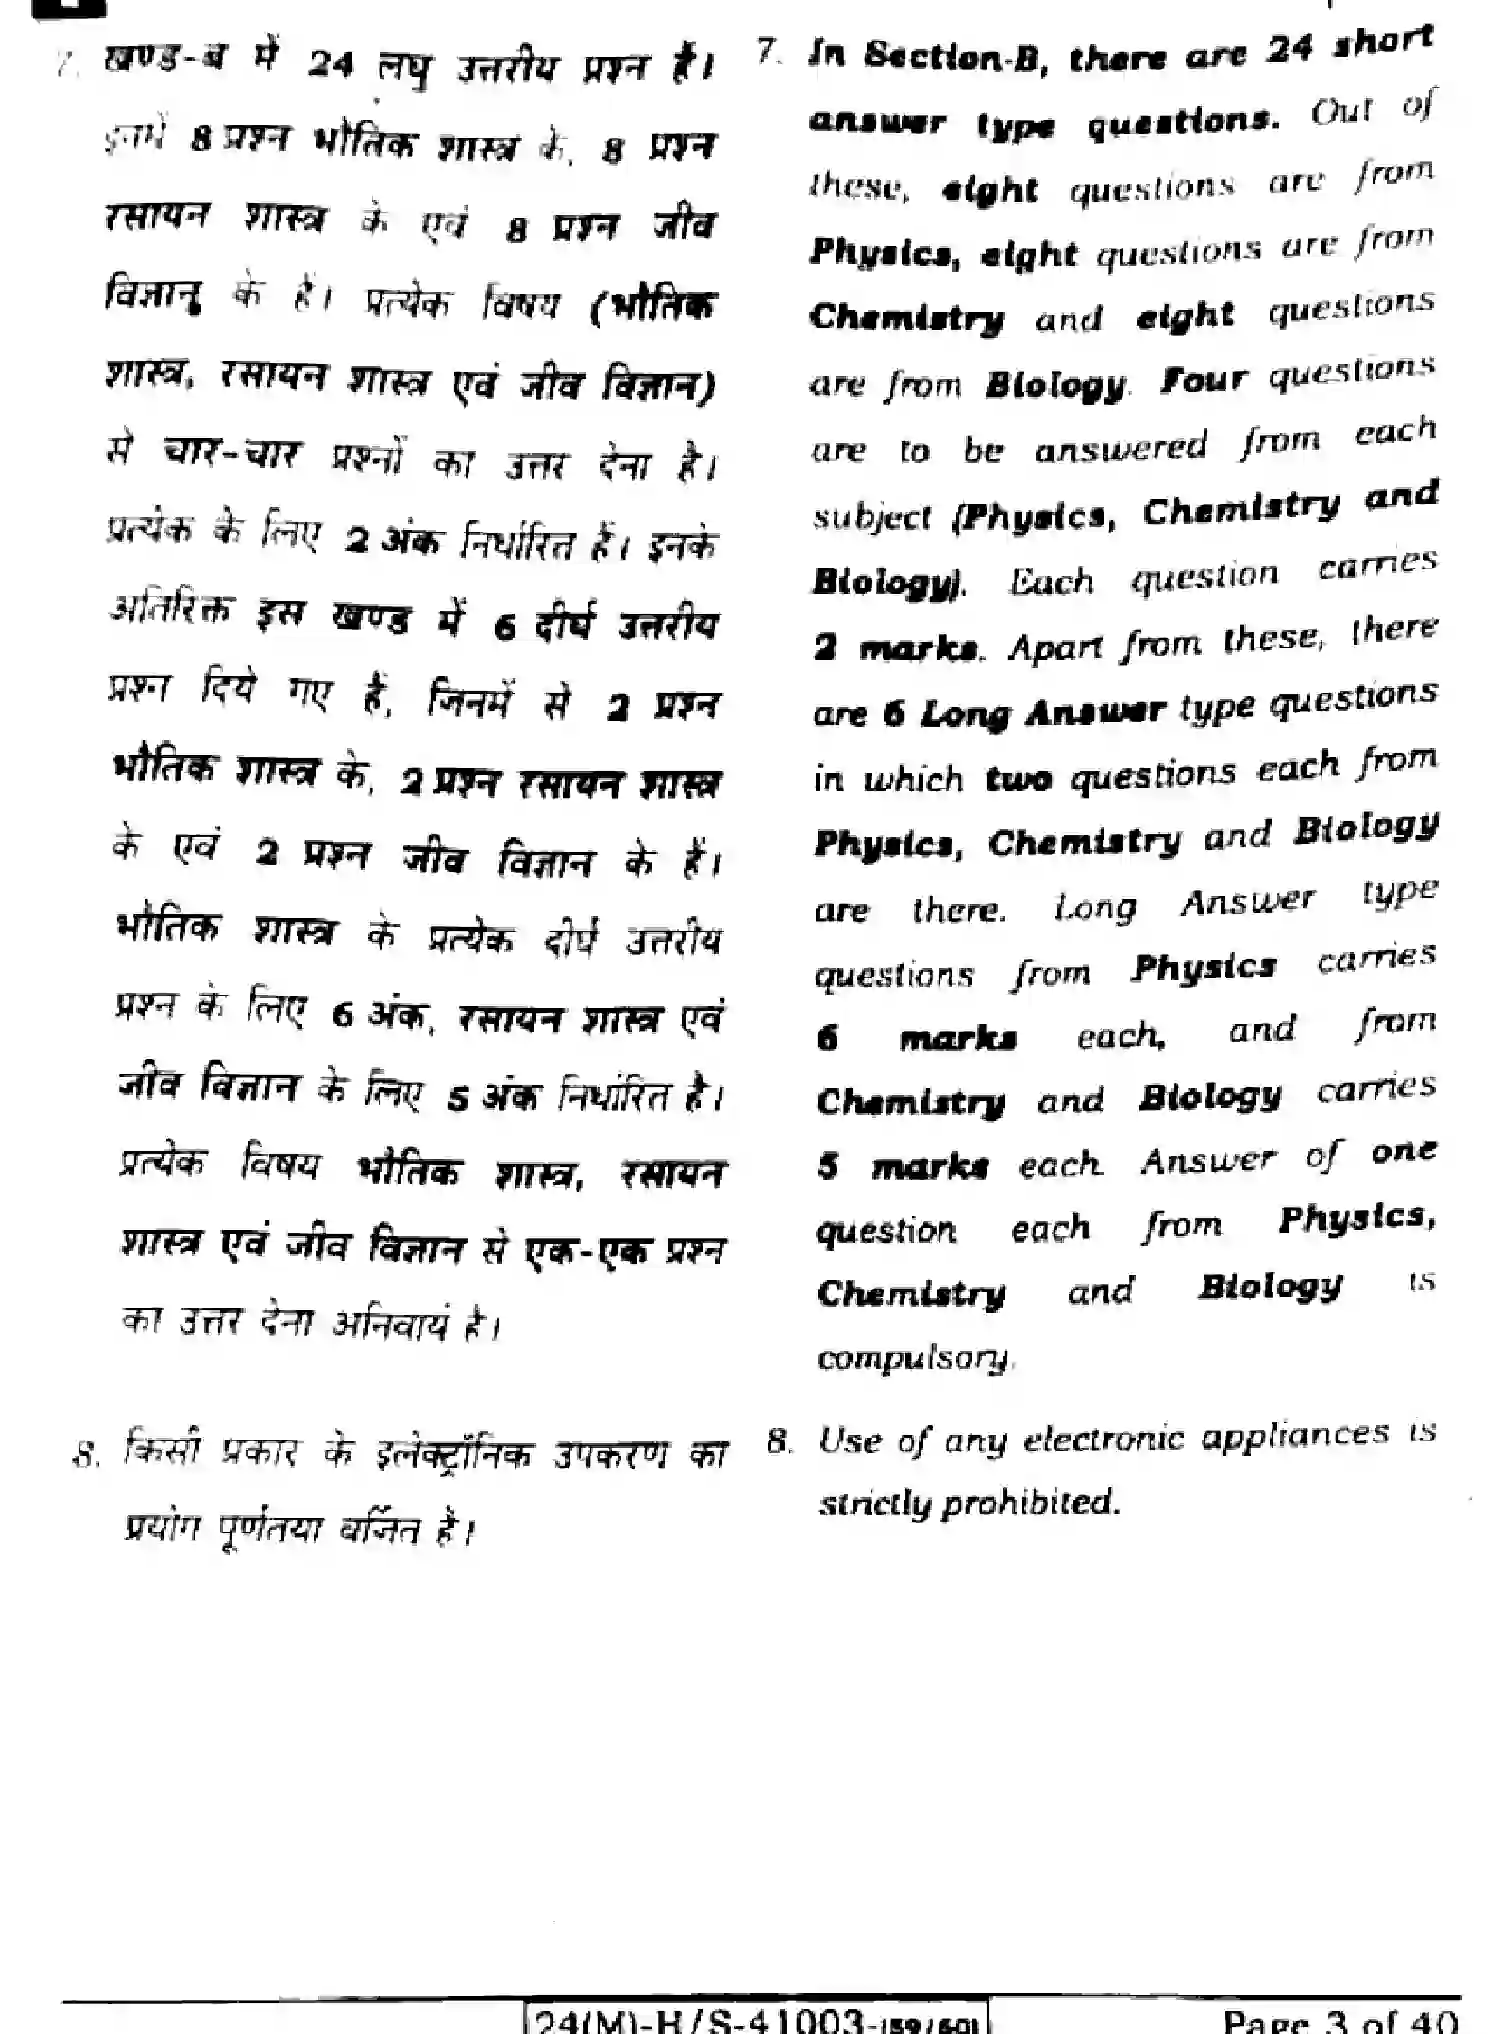 7. खण्ड-ब में 24 लघु उत्तरीय प्रश्न हैं।
इनमें 8 प्रश्न भौतिक शास्त्र के, 8 प्रश्न
रसायन शास्त्र के एवं 8 प्रश्न जीव
विज्ञान के हैं। प्रत्येक विषय (भौतिक
शास्त्र, रसायन शास्त्र एवं जीव विज्ञान)
से चार-चार प्रश्नों का उत्तर देना है।
प्रत्येक के लिए 2 अंक निर्धारित हैं। इनके
अतिरिक्त इस खण्ड में 6 दीर्घ उत्तरीय
प्रश्न दिये गए हैं, जिनमें से 2 प्रश्न
भौतिक शास्त्र के, 2 प्रश्न रसायन शास्त्र
के एवं 2 प्रश्न जीव विज्ञान के हैं।
भौतिक शास्त्र के प्रत्येक दीर्घ उत्तरीय
प्रश्न के लिए 6 अंक, रसायन शास्त्र एवं
जीव विज्ञान के लिए 5 अंक निर्धारित है।
प्रत्येक विषय भौतिक शास्त्र, रसायन
शास्त्र एवं जीव विज्ञान से एक-एक प्रश्न
का उत्तर देना अनिवार्य है।
8. किसी प्रकार के इलेक्ट्रॉनिक उपकरण का
प्रयोग पूर्णतया वर्जित है।
7. In Section-B, there are 24 short
answer type questions. Out of
these, eight questions are from
Physics, eight questions are from
Chemistry and eight questions
are from Biology. Four questions
are to be answered from each
subject (Physics, Chemistry and
Biology). Each question carries
2 marks. Apart from these, there
are 6 Long Answer type questions
in which two questions each from
Physics, Chemistry and Biology
are there. Long Answer type
questions from Physics carries
6 marks each, and from
Chemistry and Biology carries
5 marks each. Answer of one
question each from Physics,
Chemistry and Biology is
compulsory.
8. Use of any electronic appliances is
strictly prohibited.
24(M)-H/S-41003-(59/60)
Page 3 of 40